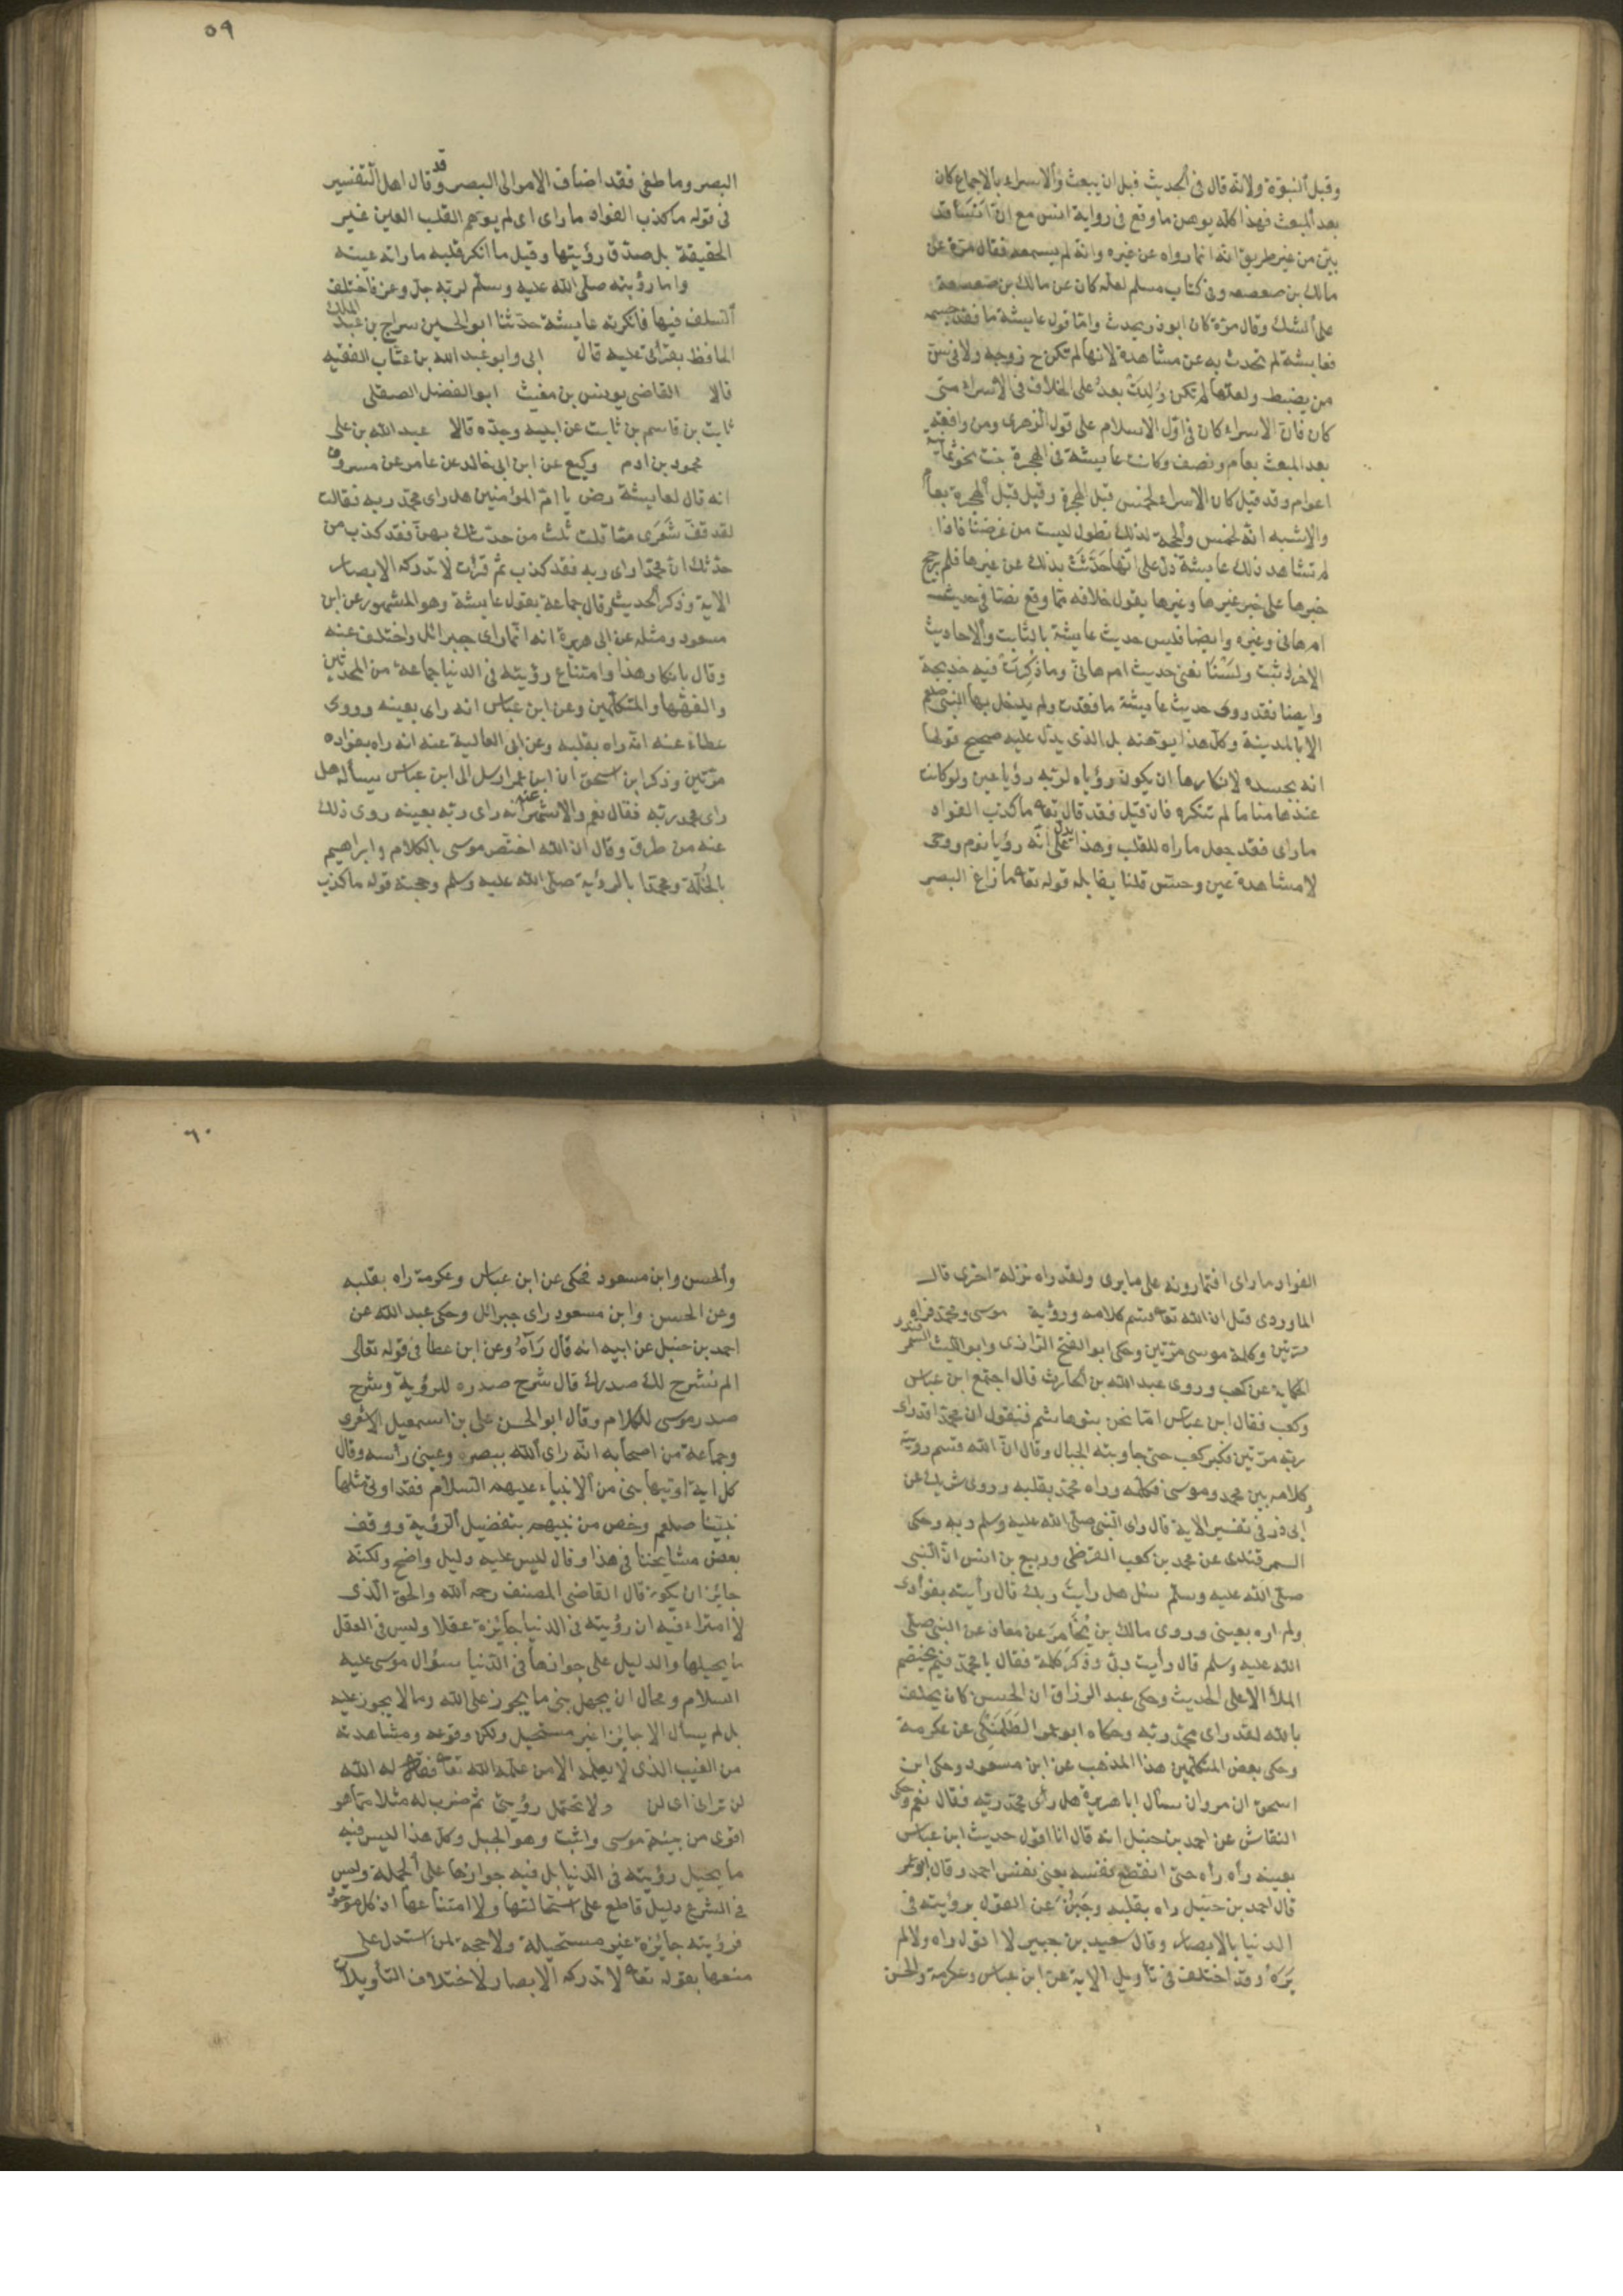 وقبل النبوة ولانه قال في الحديث قبل ان يبعث والاسراء بالاجماع كان
بعد المبعث فهذا كله يوهن ما وقع في رواية انس مع ان انسا قد
بين من غير طريق انه انما رواه عن غيره وانه لم يسمعه فقال مرة عن
مالك بن صعصعه وفي كتاب مسلم لعله كان عن مالك بن صعصعة
على الشك وقال مرة كان ابو ذر يحدث واما قول عايشة ما فقد جسمه
فعايشة لم تحدث به عن مشاهدة لانها لم تكن ح زوجه ولا في سن
من يضبط ولعلها لم تكن وُلِدَتْ بعدُ على الخلاف في الاسراء متى
كان فان الاسراء كان في اول الاسلام على قول الزهرى ومن وافقه
بعد المبعث بعام ونصف وكانت عايشة في الهجرة بنت نحو ثمانية
اعوام وقد قيل كان الاسراء لخمس قبل الهجرة وقيل قبل الهجرة بعام
والاشبه انه لخمس والحجة لذلك تطول ليست من غرضنا فاذا
لم تشاهد ذلك عايشة دل على انها حَدَّثَتْ بذلك عن غيرها فلم يرجح
خبرها على خبر غيرها وغيرها يقول خلافه مما وقع نصا في حديث
ام هانى وغيره وايضا فليس حديث عايشة بالثابت والاحاديث
الاخر اثبت ولَسْنَا نعنى حديث ام هانئ وما ذُكِرَتْ فيه خديجة
وايضا فقد روى حديث عايشة ما فقدت ولم يدخل بها النبي صلعم
الا بالمدينة وكل هذا يوهنه بل الذى يدل عليه صحيح قولها
انه بجسده لانكارها ان يكون رؤياه لربه رؤيا عين ولو كانت
عندها مناما لم تنكره فان قيل فقد قال تعه ما كذب الفواد
ما راى فقد جعل ما راه للقلب وهذا يدل على انه رؤيا نوم ووحى
لا مشاهدة عين وحس قلنا يقابله قوله تعه ما زاغ البصر
٥٩
البصر وما طغى فقد اضاف الامر الى البصر وقد قال اهل التفسير
في قوله ما كذب الفواد ما راى اى لم يوهم القلب العين غير
الحقيقة بل صدق رؤيتها وقيل ما انكر قلبه ما راته عينه
واما رؤيته صلى الله عليه وسلم لربه جل وعز فاختلف
السلف فيها فانكرته عايشة حدثنا ابو الحسين سراج بن عبد الملك
الحافظ بقرائتى عليه قال ابى وابو عبد الله بن عتاب الفقيه
قالا القاضى يونس بن مغيث ابو الفضل الصقلى
ثابت بن قاسم بن ثابت عن ابيه وجده قالا عبد الله بن على
محمود بن ادم وكيع عن ابن ابى خالد عن عامر عن مسروق
انه قال لعايشة رض يا ام المؤمنين هل راى محمد ربه فقالت
لقد قفّ شَعَرى مما قلت ثلث من حدثك بهن فقد كذب من
حدثك ان محمدا راى ربه فقد كذب ثم قرأت لا تدركه الابصار
الاية وذكر الحديث وقال جماعة بقول عايشة وهو المشهور عن ابن
مسعود ومثله عن ابى هريرة انه انما راى جبرائل واختلف عنه
وقال بانكار هذا وامتناع رؤيته في الدنيا جماعة من المحدثين
والفقهاء والمتكلمين وعن ابن عباس انه راى بعينه وروى
عطاء عنه انه راه بقلبه وعن ابى العالية عنه انه راه بفواده
مرتين وذكر ابن اسحق ان ابن عمر ارسل الى ابن عباس يسأله هل
راى محمد ربه فقال نعم والاشهر عنه انه راى ربه بعينه روى ذلك
عنه من طرق وقال ان الله اختص موسى بالكلام وابراهيم
بالخُلّة ومحمدا بالرؤية صلى الله عليه وسلم وحجته قوله ما كذب
الفواد ما راى افتمارونه على ما يرى ولقد راه نزلة اخرى قال
الماوردى قيل ان الله تعه قسم كلامه ورؤية موسى ومحمد فراه
مرتين وكلمة موسى مرتين وحكى ابو الفتح الرازى وابو الليث السمرقندى
الحكاية عن كعب وروى عبد الله بن الحارث قال اجتمع ابن عباس
وكعب فقال ابن عباس اما نحن بنو هاشم فنقول ان محمدا قد راى
ربه مرتين فكبر كعب حتى جاوبته الجبال وقال ان الله قسم رويته
وكلامه بين محمد وموسى فكلمه وراه محمد بقلبه وروى شريك عن
ابى ذر في تفسير الاية قال راى النبي صلى الله عليه وسلم ربه وحكى
السمرقندى عن محمد بن كعب القرظى وربيع بن انس ان النبى
صلى الله عليه وسلم سئل هل رأيت ربك قال رأيته بفوأدى
ولم اره بعينى وروى مالك بن يُخَامِرَ عن معاذ عن النبى صلى
الله عليه وسلم قال رأيت ربى وذكر كلمة فقال يا محمد فيم يختصم
الملأ الاعلى الحديث وحكى عبد الرزاق ان الحسن كان يحلف
بالله لقد راى محمد ربه وحكاه ابو عمر الطَلَمَنْكِى عن عكرمة
وحكى بعض المتكلمين هذا المذهب عن ابن مسعود وحكى ابن
اسحق ان مروان سأل ابا هريرة هل رأى محمد ربه فقال نعم وحكى
النقاش عن احمد بن حنبل انه قال انا اقول حديث ابن عباس
بعينه رأه رأه حتى انقطع نفسه يعنى نفس احمد وقال ابو عمر
قال احمد بن حنبل راه بقلبه وجَبُنَ عن القول برؤيته في
الدنيا بالابصار وقال سعيد بن جبير لا اقول راه ولا لم
يَرَهُ وقد اختلف في تأويل الاية عن ابن عباس وعكرمة والحسن
٦٠
والحسن وابن مسعود فحكى عن ابن عباس وعكرمة راه بقلبه
وعن الحسن وابن مسعود راى جبرائل وحكى عبد الله عن
احمد بن حنبل عن ابيه انه قال رَآهُ وعن ابن عطأ في قوله تعالى
الم نشرح لك صدرك قال شرح صدره للرؤية وشرح
صدر موسى للكلام وقال ابو الحسن على بن اسمعيل الاشعرى
وجماعة من اصحابه انه راى الله ببصره وعينى رأسه وقال
كل اية اوتيها نبى من الانبياء عليهم السلام فقد اوتى مثلها
نبينا صلعم وخص من بينهم بتفضيل الرؤية ووقف
بعض مشايخنا في هذا وقال ليس عليه دليل واضح ولكنه
جايز ان يكون قال القاضى المصنف رحمه الله والحق الذى
لا امتراء فيه ان رؤيته في الدنيا جايزة عقلا وليس في العقل
ما يحيلها والدليل على جوازها في الدنيا سؤال موسى عليه
السلام ومحال ان يجهل نبى ما يجوز على الله وما لا يجوز عليه
بل لم يسأل الا جايزا غير مستحيل ولكن وقوعه ومشاهدته
من الغيب الذى لا يعلمه الا من علمه الله تعه فقال له الله
لن ترانى اى لن ولا تحتمل رؤيتى ثم ضرب له مثلا مما هو
اقوى من بنية موسى واثبت وهو الجبل وكل هذا ليس فيه
ما يحيل رؤيته في الدنيا بل فيه جوازها على الجملة وليس
في الشرع دليل قاطع على استحالتها ولا امتناعها اذ كل موجود
فرؤيته جايزة غير مستحيلة ولا حجة لمن استدل على
منعها بقوله تعه لا تدركه الابصار لاختلاف التأويلات